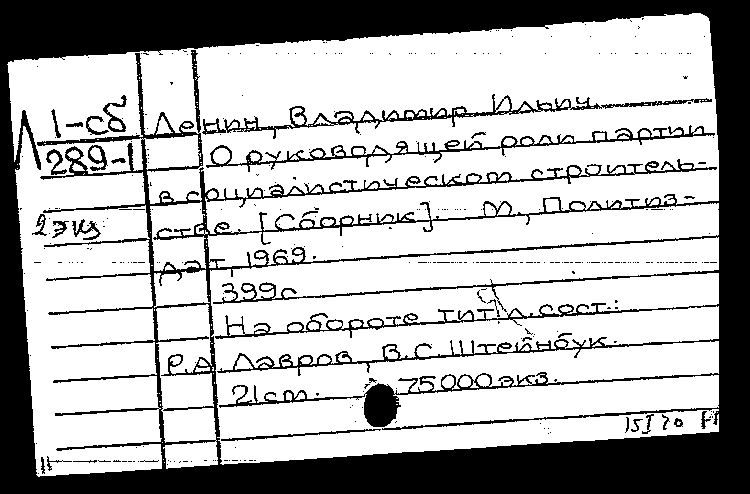 Л 1-сб
289-1
2 экз
Ленин, Владимир Ильич.
О руководящей роли партии
в социалистическом строитель-
стве. [Сборник]. М., Политиз-
дат, 1969.
399с
На обороте тит. л. сост.:
Р.А. Лавров, В.С. Штейнбук.
21 см. 75000 экз.
15 I 70